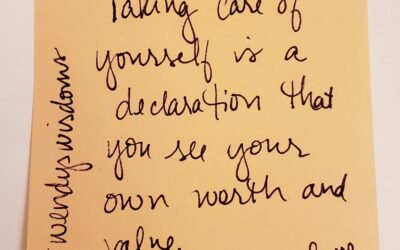 Taking care of
yourself is a
declaration that
you see your
own worth and
value.
wendyswisdoms